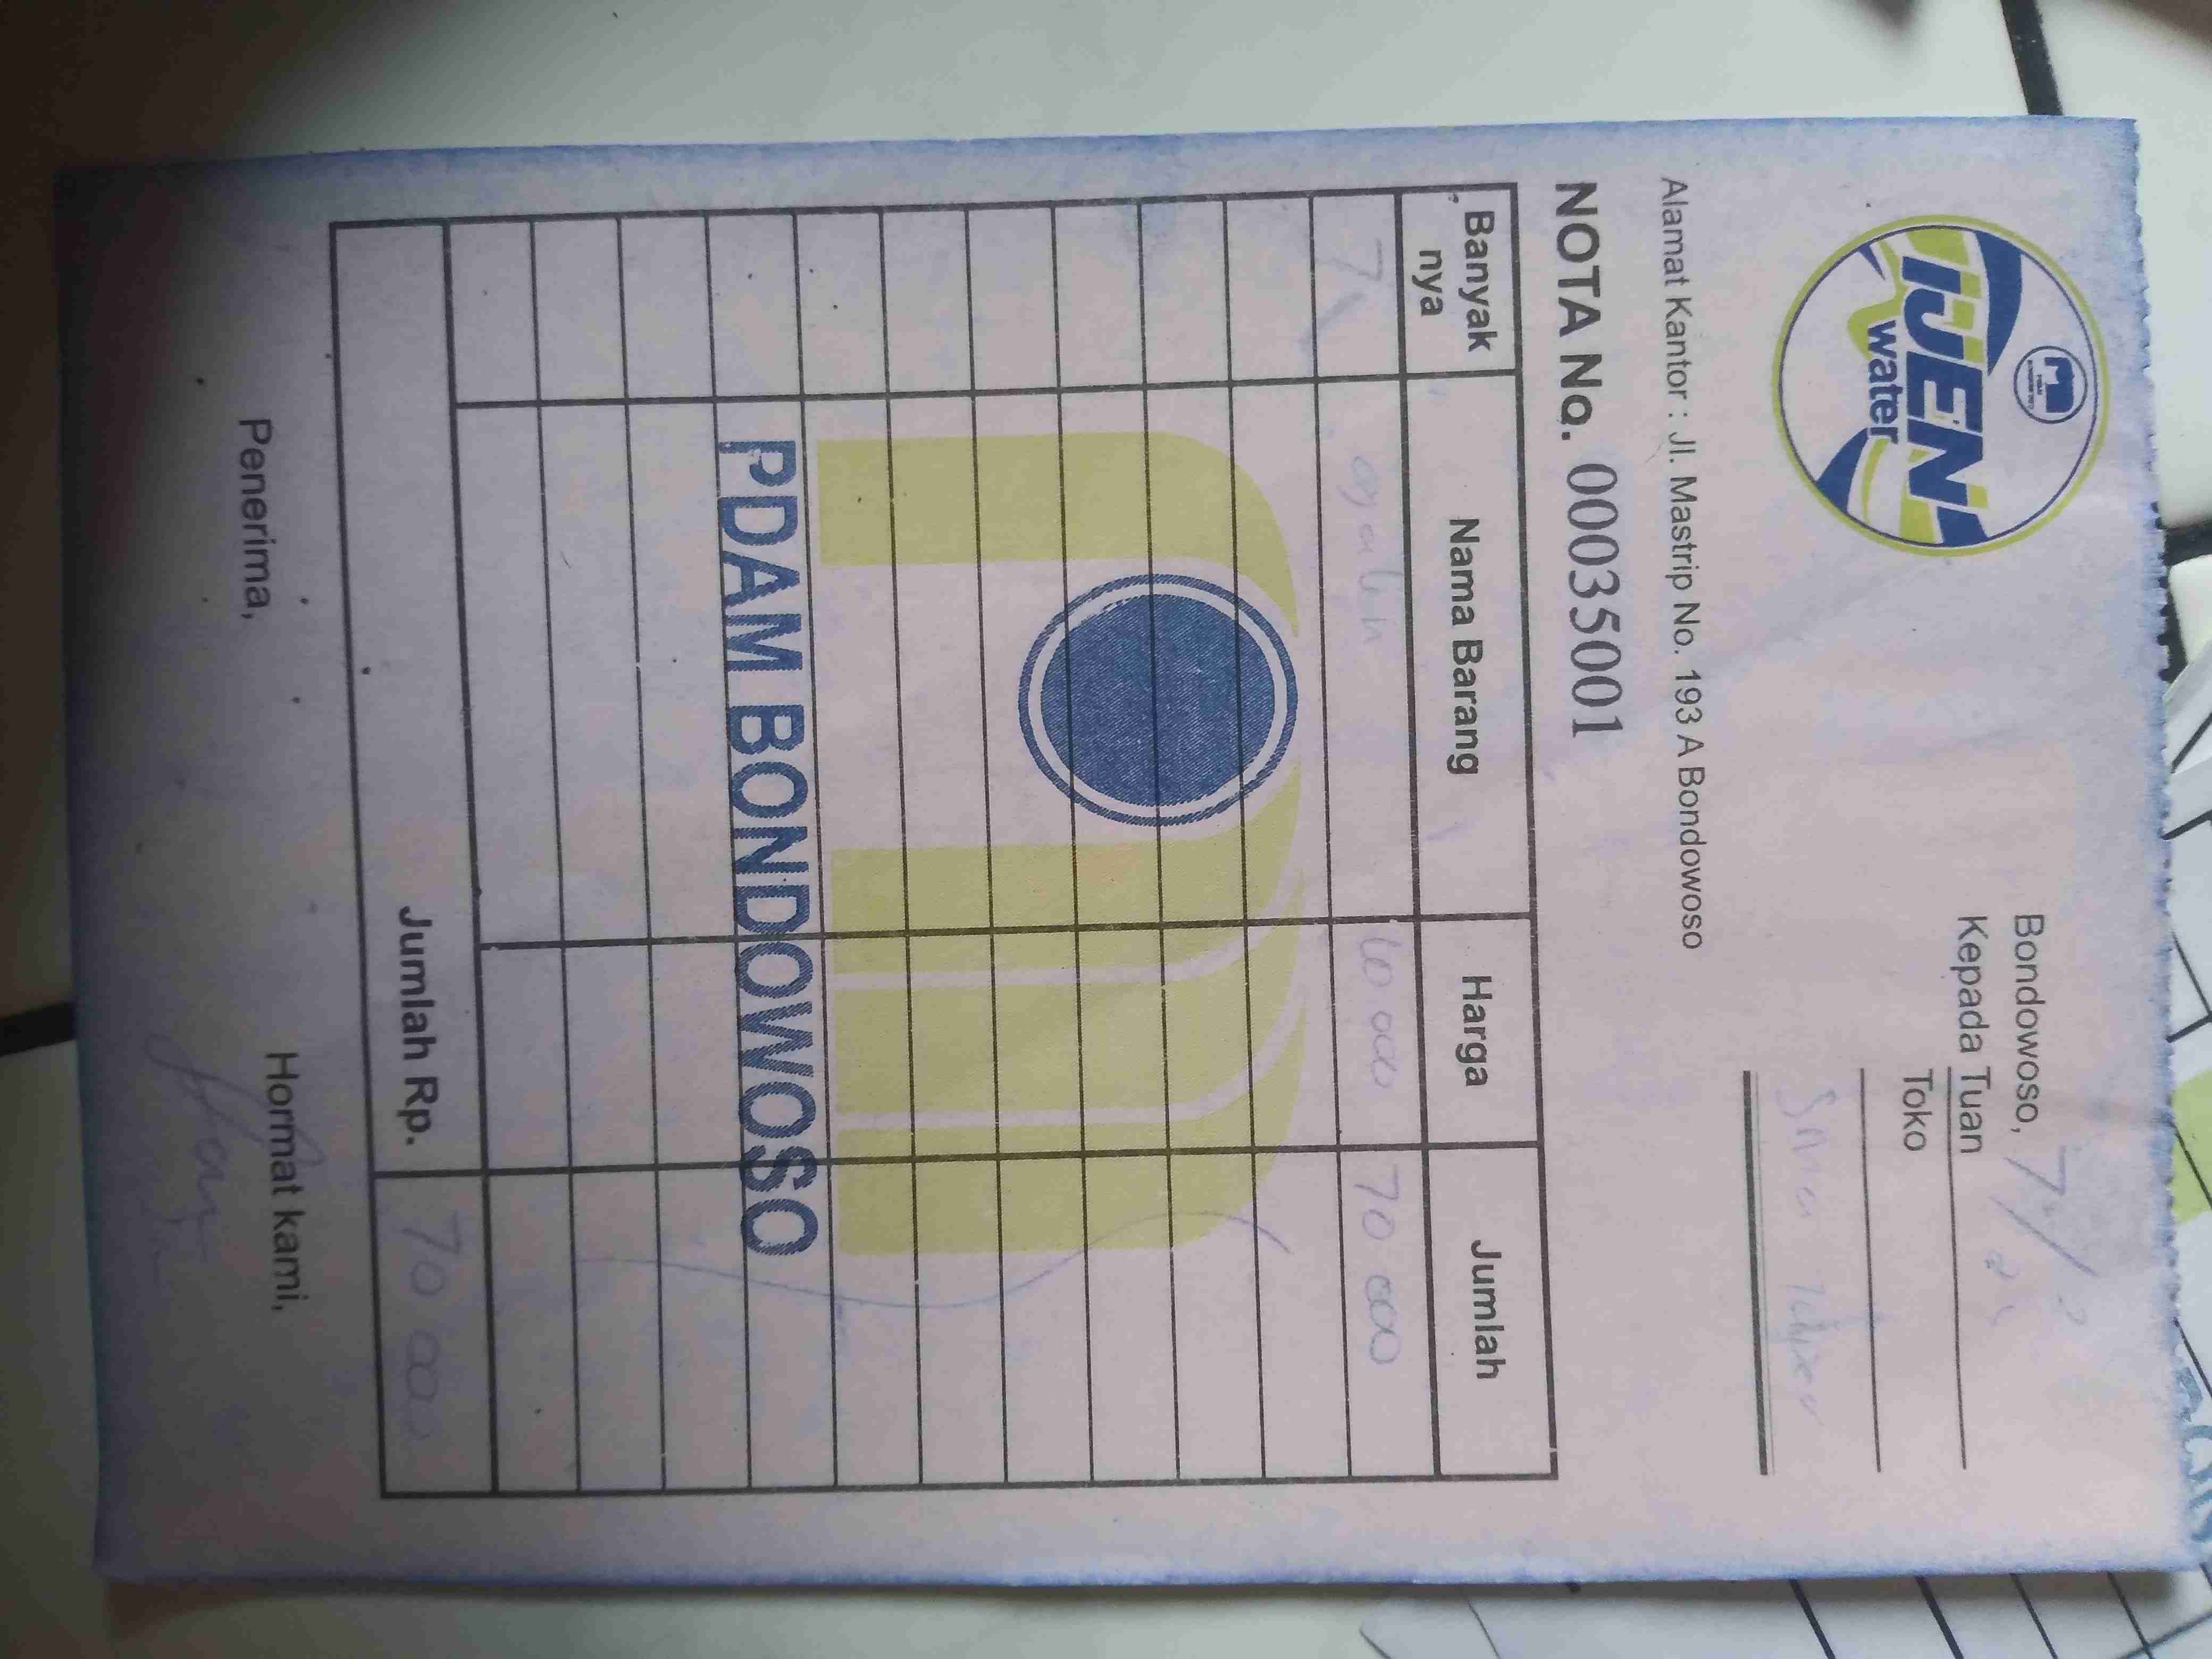 IJEN
water
Bondowoso, 7/2
Kepada Tuan
Toko
Alamat Kantor : Jl. Mastrip No. 193 A Bondowoso
NOTA No. 00035001
Banyak nya Nama Barang Harga Jumlah
7 galon 10 000 70 000
PDAM BONDOWOSO
Jumlah Rp. 70 000
Penerima, Hormat kami,